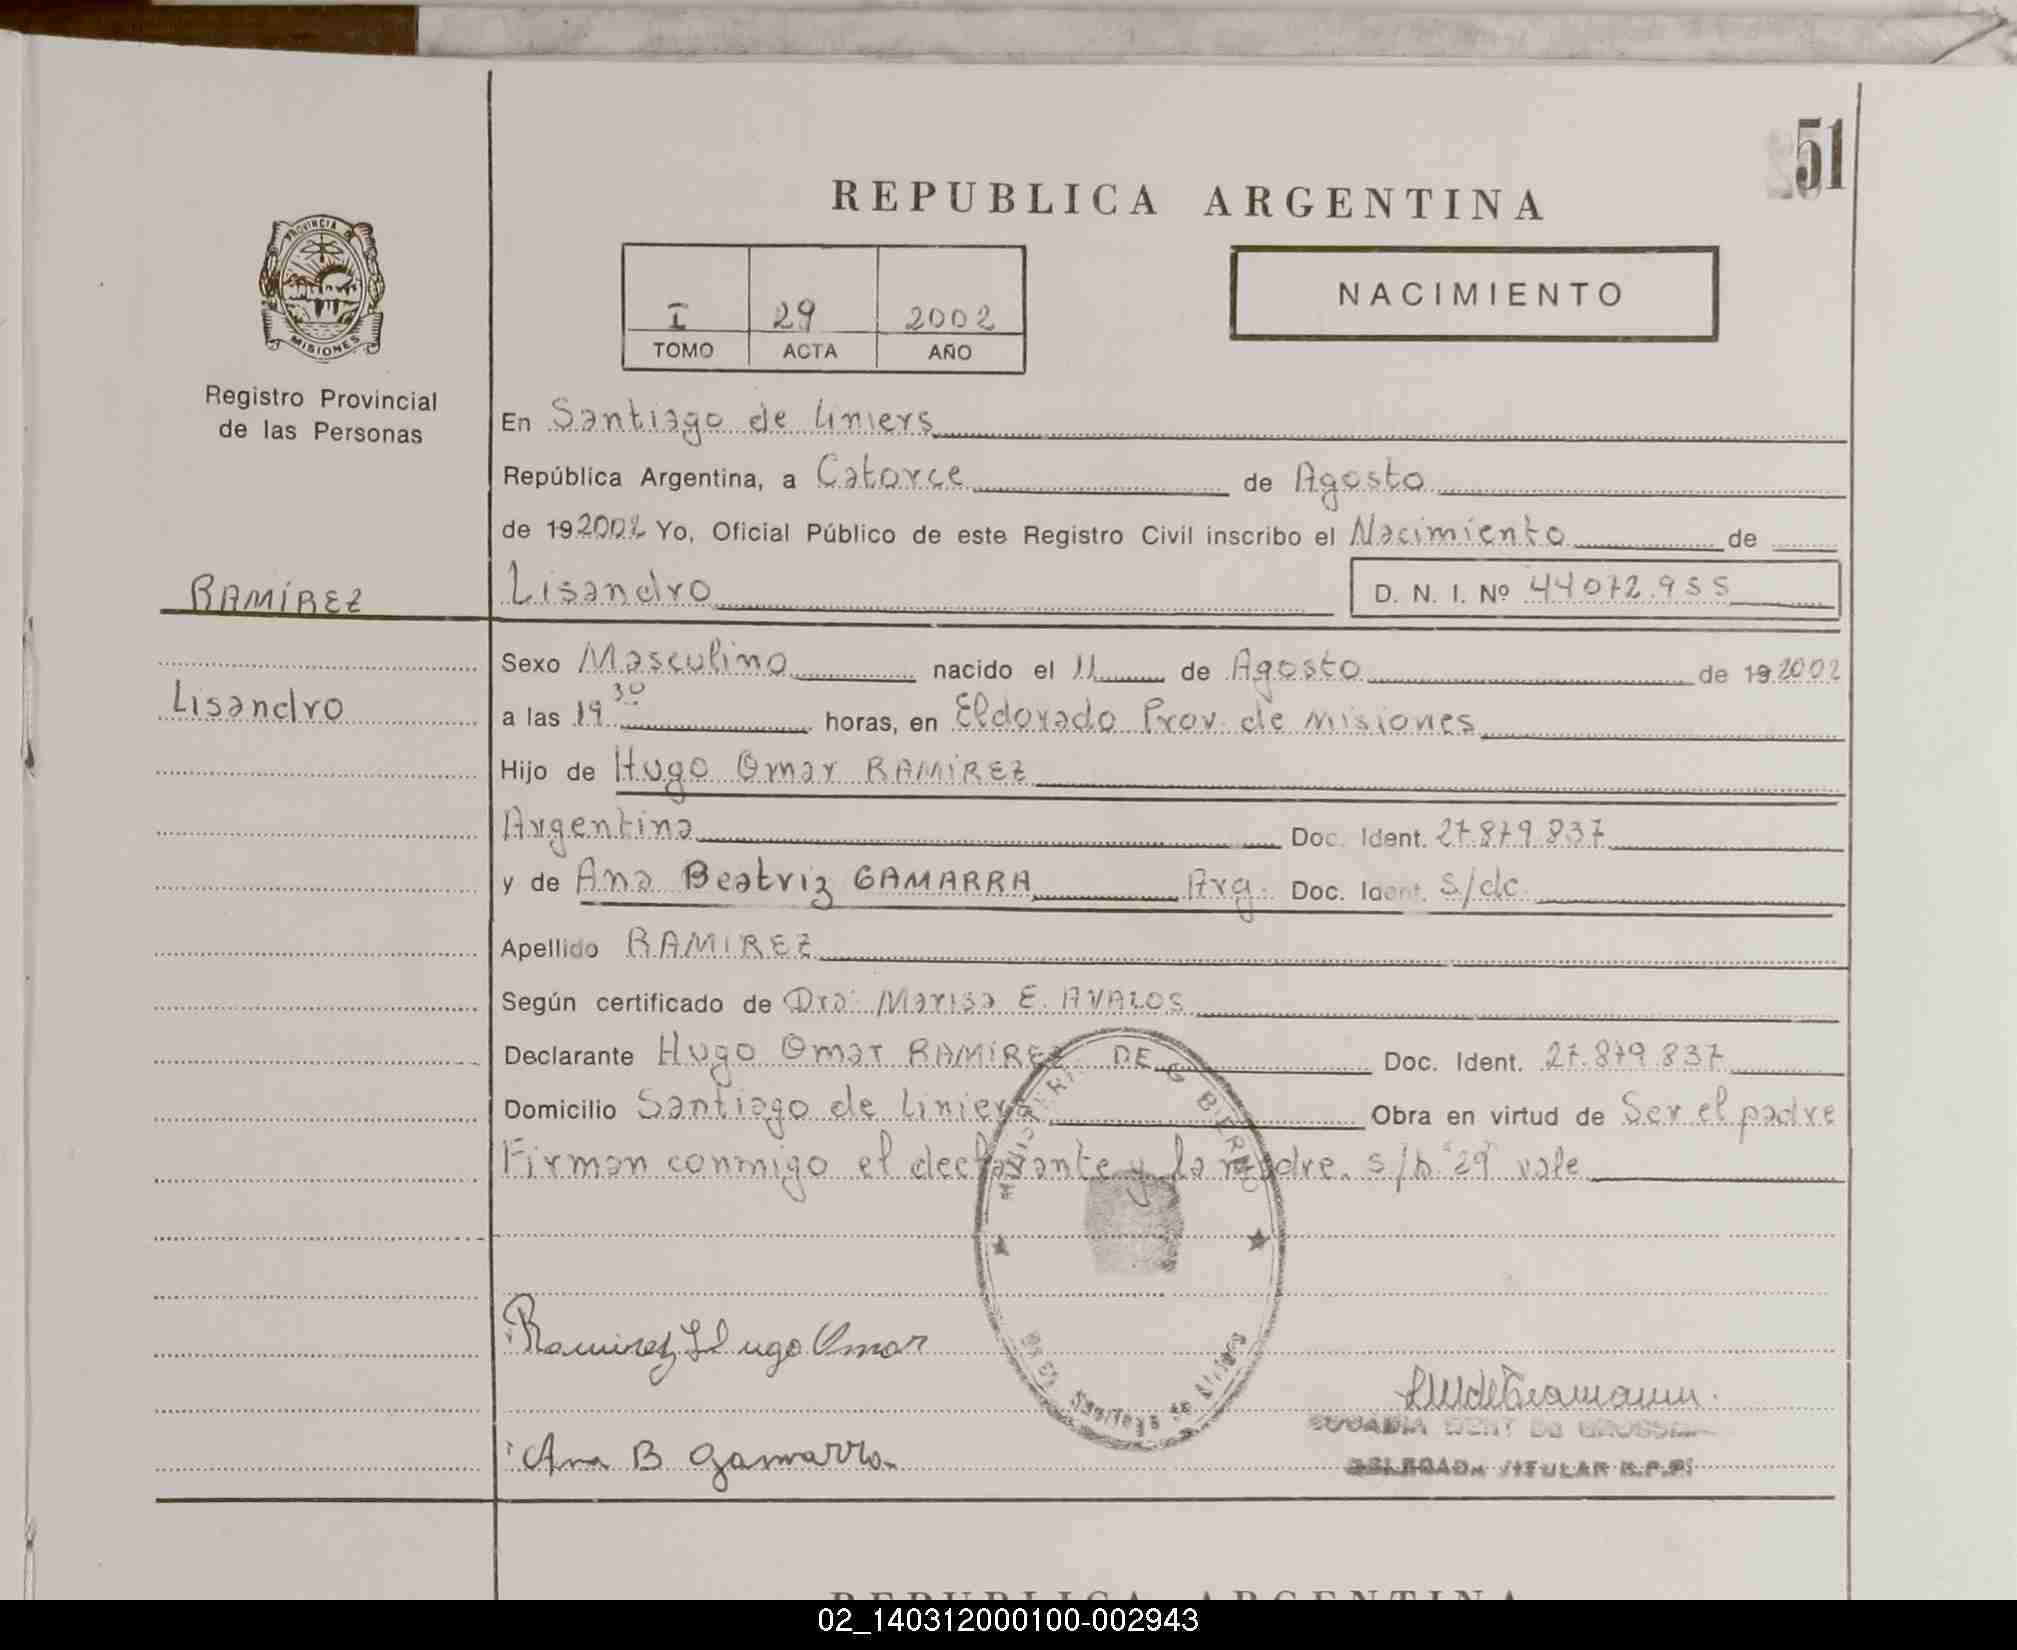 51
REPUBLICA ARGENTINA
PROVINCIA DE
MISIONES
I 29 2002
TOMO ACTA AÑO
NACIMIENTO
Registro Provincial
de las Personas
En Santiago de Liniers
República Argentina, a Catorce de Agosto
de 19 2002 Yo, Oficial Público de este Registro Civil inscribo el Nacimiento de
RAMÍREZ
Lisandro D. N. I. Nº 44072.955
Sexo Masculino nacido el 11 de Agosto de 19 2002
Lisandro
a las 19 30 horas, en Eldorado Prov. de Misiones
Hijo de Hugo Omar RAMÍREZ
Argentina Doc. Ident. 27.879.837
y de Ana Beatriz GAMARRA Arg. Doc. Ident. s/dc.
Apellido RAMIREZ
Según certificado de Dra: Marisa E. AVALOS
Declarante Hugo Omar RAMÍREZ Doc. Ident. 27.879.837
Domicilio Santiago de Liniers Obra en virtud de Ser el padre
Firman conmigo el declarante y la madre. s/b "29" vale
MINISTERIO DE GOBIERNO
Santiago de Liniers
Ramirez Hugo Omar
Ana B Gamarra
DELEGADA TITULAR R.P.P.
REPUBLICA ARGENTINA
02_140312000100-002943